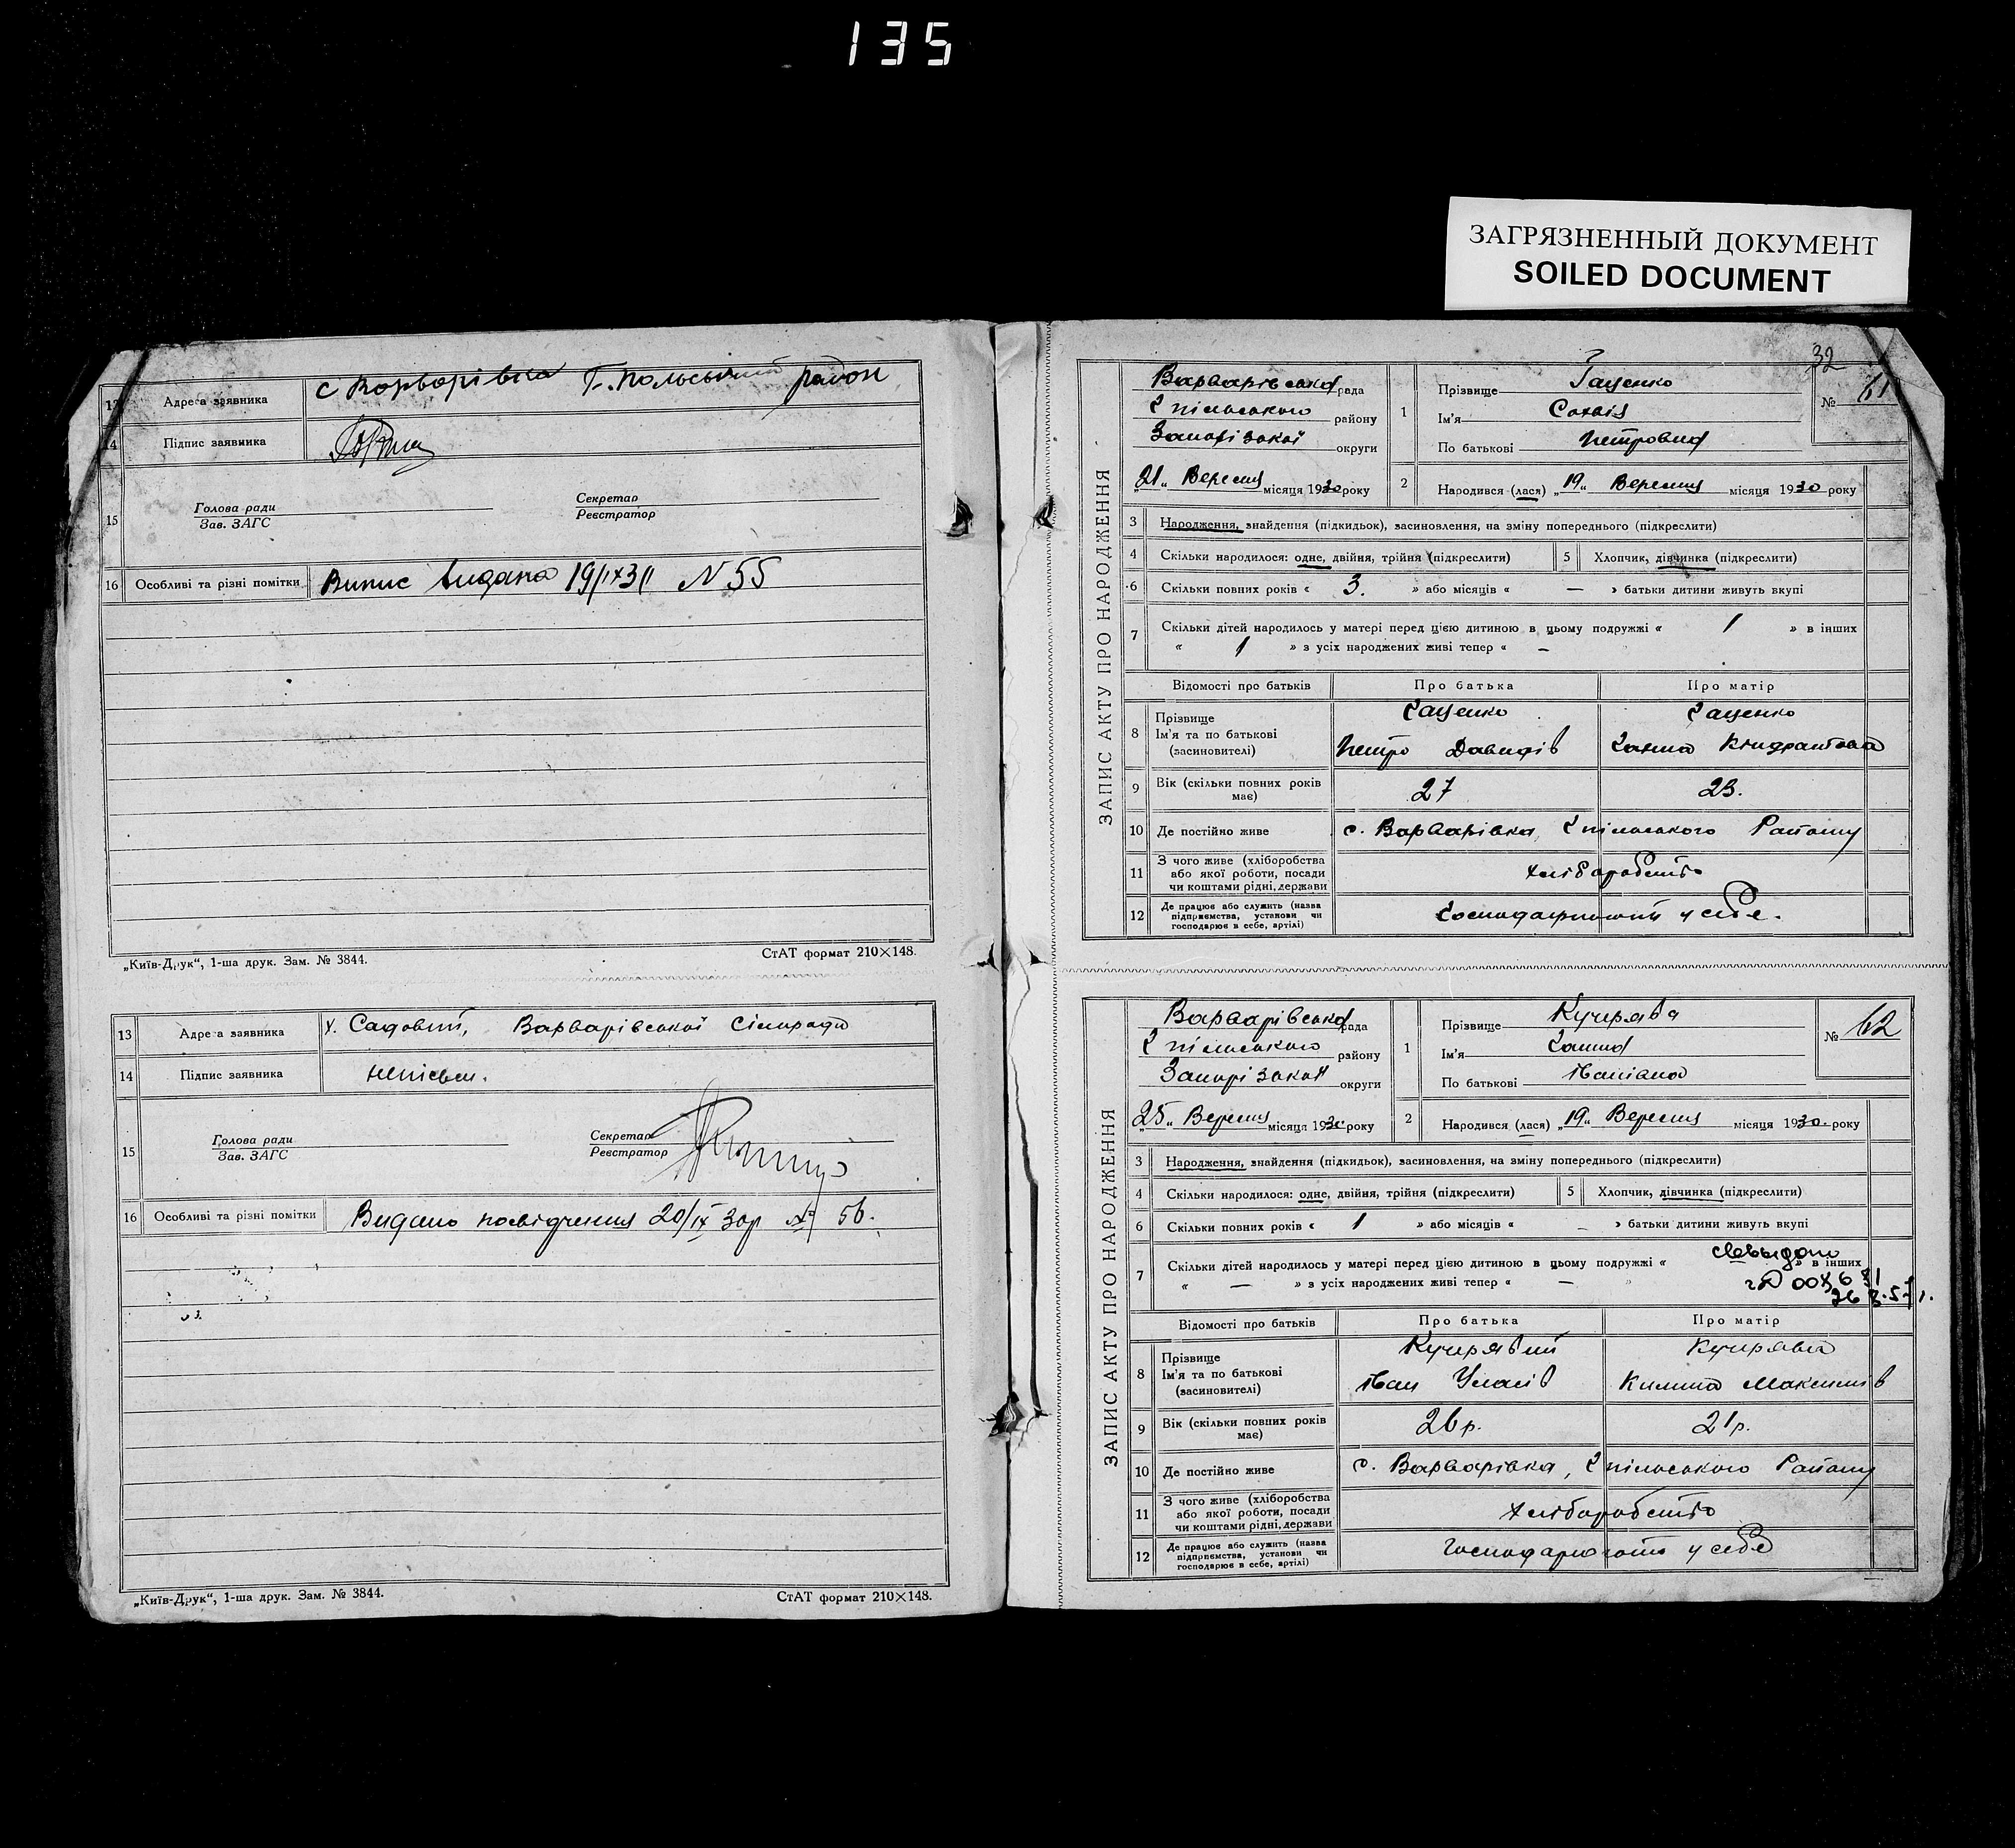 135
ЗАГРЯЗНЕННЫЙ ДОКУМЕНТ
SOILED DOCUMENT
13 Адреса заявника с Варварівка Г.-Польський район
14 Підпис заявника
15 Голова ради Секретар
Зав. ЗАГС Реєстратор
16 Особливі та різні помітки Випис видана 19/IX 31 N 55
„Київ-Друк“, 1-ша друк. Зам. № 3844. СтАТ формат 210×148.
13 Адреса заявника х. Садовий, Варварівської Сільради
14 Підпис заявника неписьм.
15 Голова ради Секретар
Зав. ЗАГС Реєстратор
16 Особливі та різні помітки Видано посвідчення 20/IX 30р № 56.
„Київ-Друк“, 1-ша друк. Зам. № 3844. СтАТ формат 210×148.
32
ЗАПИС АКТУ ПРО НАРОДЖЕННЯ
Варварівська рада
Гпільського району
Запорізької округи
„21“ Вересня місяця 1930 року
1 Прізвище Гаценко
Ім’я Софія
По батькові Петровна
№ 61
2 Народився (лася) „19“ Вересня місяця 1930 року
3 Народження, знайдення (підкидьок), засиновлення, на зміну попереднього (підкреслити)
4 Скільки народилося: одне, двійня, трійня (підкреслити) 5 Хлопчик, дівчинка (підкреслити)
6 Скільки повних років « 3. » або місяців « — » батьки дитини живуть вкупі
7 Скільки дітей народилось у матері перед цією дитиною в цьому подружжі « 1 » в інших
« 1 » з усіх народжених живі тепер « —
Відомості про батьків Про батька Про матір
8 Прізвище Гаценко Гаценко
Ім’я та по батькові Петро Давидів Ганна
(засиновителі)
9 Вік (скільки повних років має) 27 23.
10 Де постійно живе с. Варварівка, Гпільського Району
11 З чого живе (хліборобства
або якої роботи, посади хліборобство
чи коштами рідні, держави
12 Де працює або служить (назва
підприємства, установи чи у себе.
господарює в себе, артілі)
ЗАПИС АКТУ ПРО НАРОДЖЕННЯ
Варварівська рада
Гпільського району
Запорізької округи
„25“ Вересня місяця 1930 року
1 Прізвище Кучерява
Ім’я Ганна
По батькові Іванівна
№ 62
2 Народився (лася) „19“ Вересня місяця 1930. року
3 Народження, знайдення (підкидьок), засиновлення, на зміну попереднього (підкреслити)
4 Скільки народилося: одне, двійня, трійня (підкреслити) 5 Хлопчик, дівчинка (підкреслити)
6 Скільки повних років « 1 » або місяців « — » батьки дитини живуть вкупі
7 Скільки дітей народилось у матері перед цією дитиною в цьому подружжі « » в інших
« — » з усіх народжених живі тепер « — »
Відомості про батьків Про батька Про матір
8 Прізвище Кучерявий Кучерява
Ім’я та по батькові Іван Килина Максимів
(засиновителі)
9 Вік (скільки повних років має) 26р. 21р.
10 Де постійно живе с. Варварівка, Гпільського Району
11 З чого живе (хліборобства
або якої роботи, посади хліборобство
чи коштами рідні, держави
12 Де працює або служить (назва
підприємства, установи чи у себе
господарює в себе, артілі)